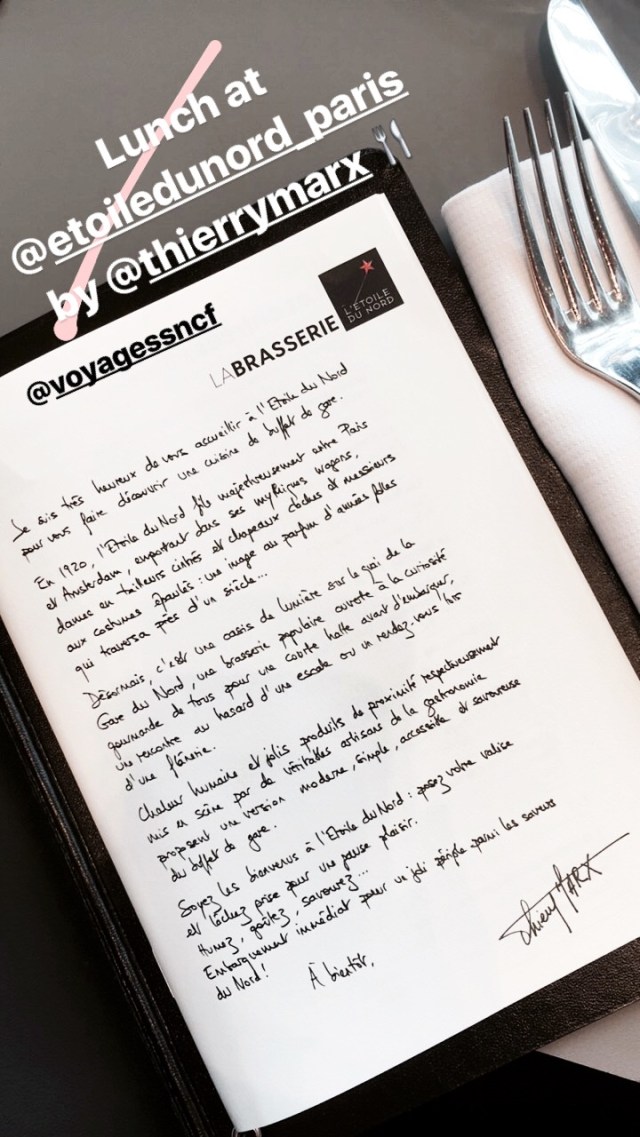 Lunch at
@etoiledunord_paris
by @thierrymarx
@voyagessncf
LABRASSERIE
L'ETOILE
DU NORD
Je suis très heureux de vous accueillir à l'Etoile du Nord
pour vous faire découvrir une cuisine de buffet de gare.
En 1920, l'Etoile du Nord file majestueusement entre Paris
et Amsterdam, emportant dans ses mythiques wagons,
dames en tailleurs cintrés et chapeaux cloches et messieurs
aux costumes épaulés : une image au parfum d'années folles
qui traversa près d'un siècle...
Désormais, c'est une oasis de lumière sur le quai de la
Gare du Nord, une brasserie populaire ouverte à la curiosité
gourmande de tous pour une courte halte avant d'embarquer,
une rencontre au hasard d'une escale ou un rendez-vous lors
d'une flânerie.
Chaleur humaine et jolis produits de proximité respectueusement
mis en scène par de véritables artisans de la gastronomie
proposent une version moderne, simple, accessible et savoureuse
du buffet de gare.
Soyez les bienvenus à l'Etoile du Nord : posez votre valise
et lâchez prise pour une pause plaisir.
Humez, goûtez, savourez...
Embarquement immédiat pour un joli périple parmi les saveurs
du Nord !
À bientôt,
Thierry MARX